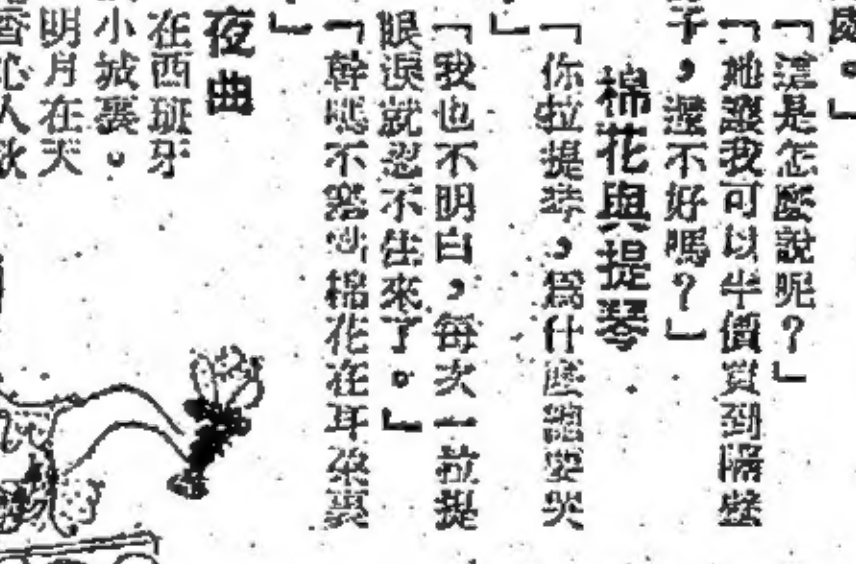 處。」
「這是怎麼說呢?」
「她讓我可以半價買到隔壁
子,還不好嗎?」
棉花與提琴
「你拉提琴,爲什麼總要哭
」
「我也不明白,每次一拉提
眼淚就忍不住來了。」
「幹嗎不塞些棉花在耳朶裏
」
夜曲
在西班牙
小城裏。
明月在天
香沁人